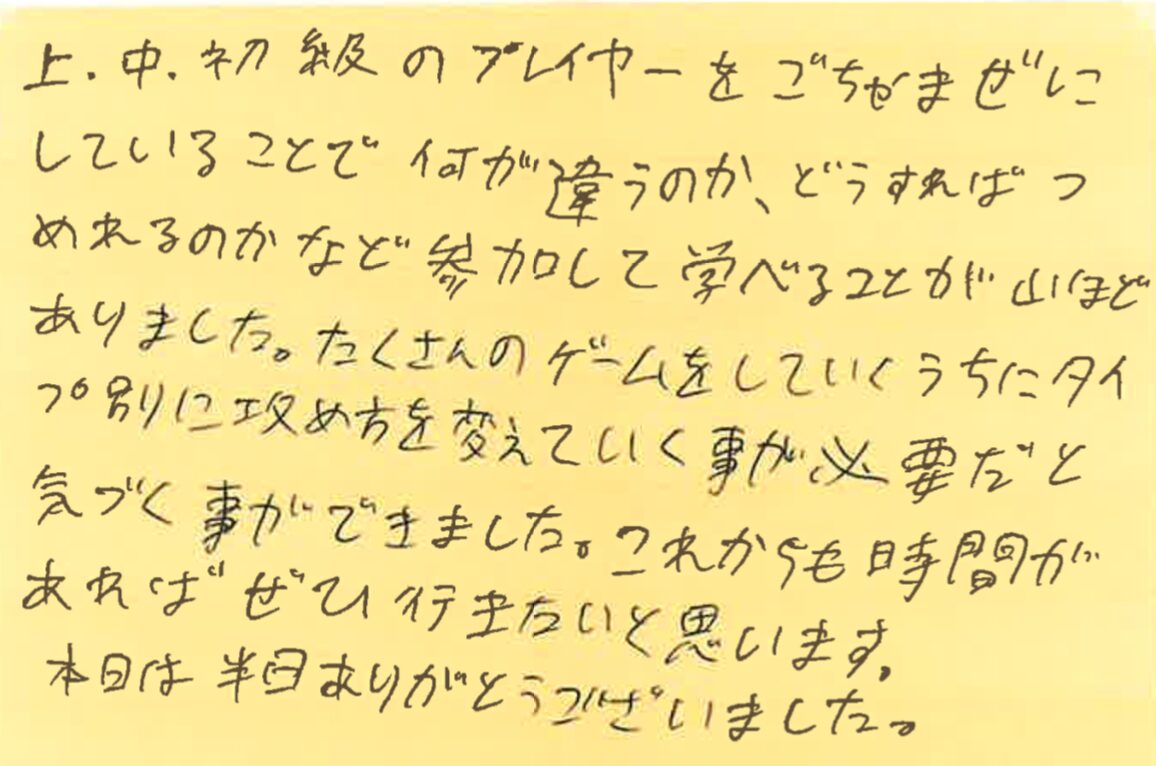 上.中.初級のプレイヤーをごちゃまぜに
していることで何が違うのか、どうすればつ
めれるのかなど参加して学べることが山ほど
ありました。たくさんのゲームをしていくうちにタイ
プ別に攻め方を変えていく事が必要だと
気づく事ができました。これからも時間が
あればぜひ行きたいと思います。
本日は半日ありがとうございました。